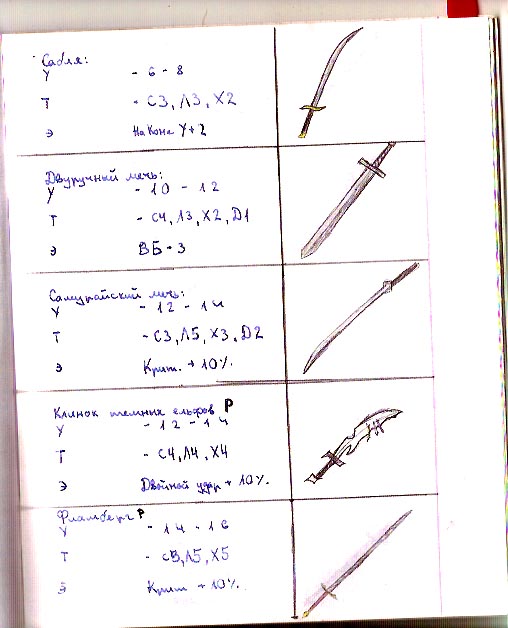 Сабля:
У - 6 - 8
Т - С3, Л3, Х2
Э На коне У+2
Двуручный мечь:
У - 10 - 12
Т - С4, Л3, Х2, D1
Э ВБ - 3
Самурайский мечь:
У - 12 - 14
Т - С3, Л5, Х3, D2
Э Крит. + 10%
Клинок темных ельфов Р
У - 12 - 14
Т - С4, Л4, Х4
Э Двойной удар + 10%.
Фламберг Р
У - 14 - 16
Т - С3, Л5, Х5
Э Крит + 10%.